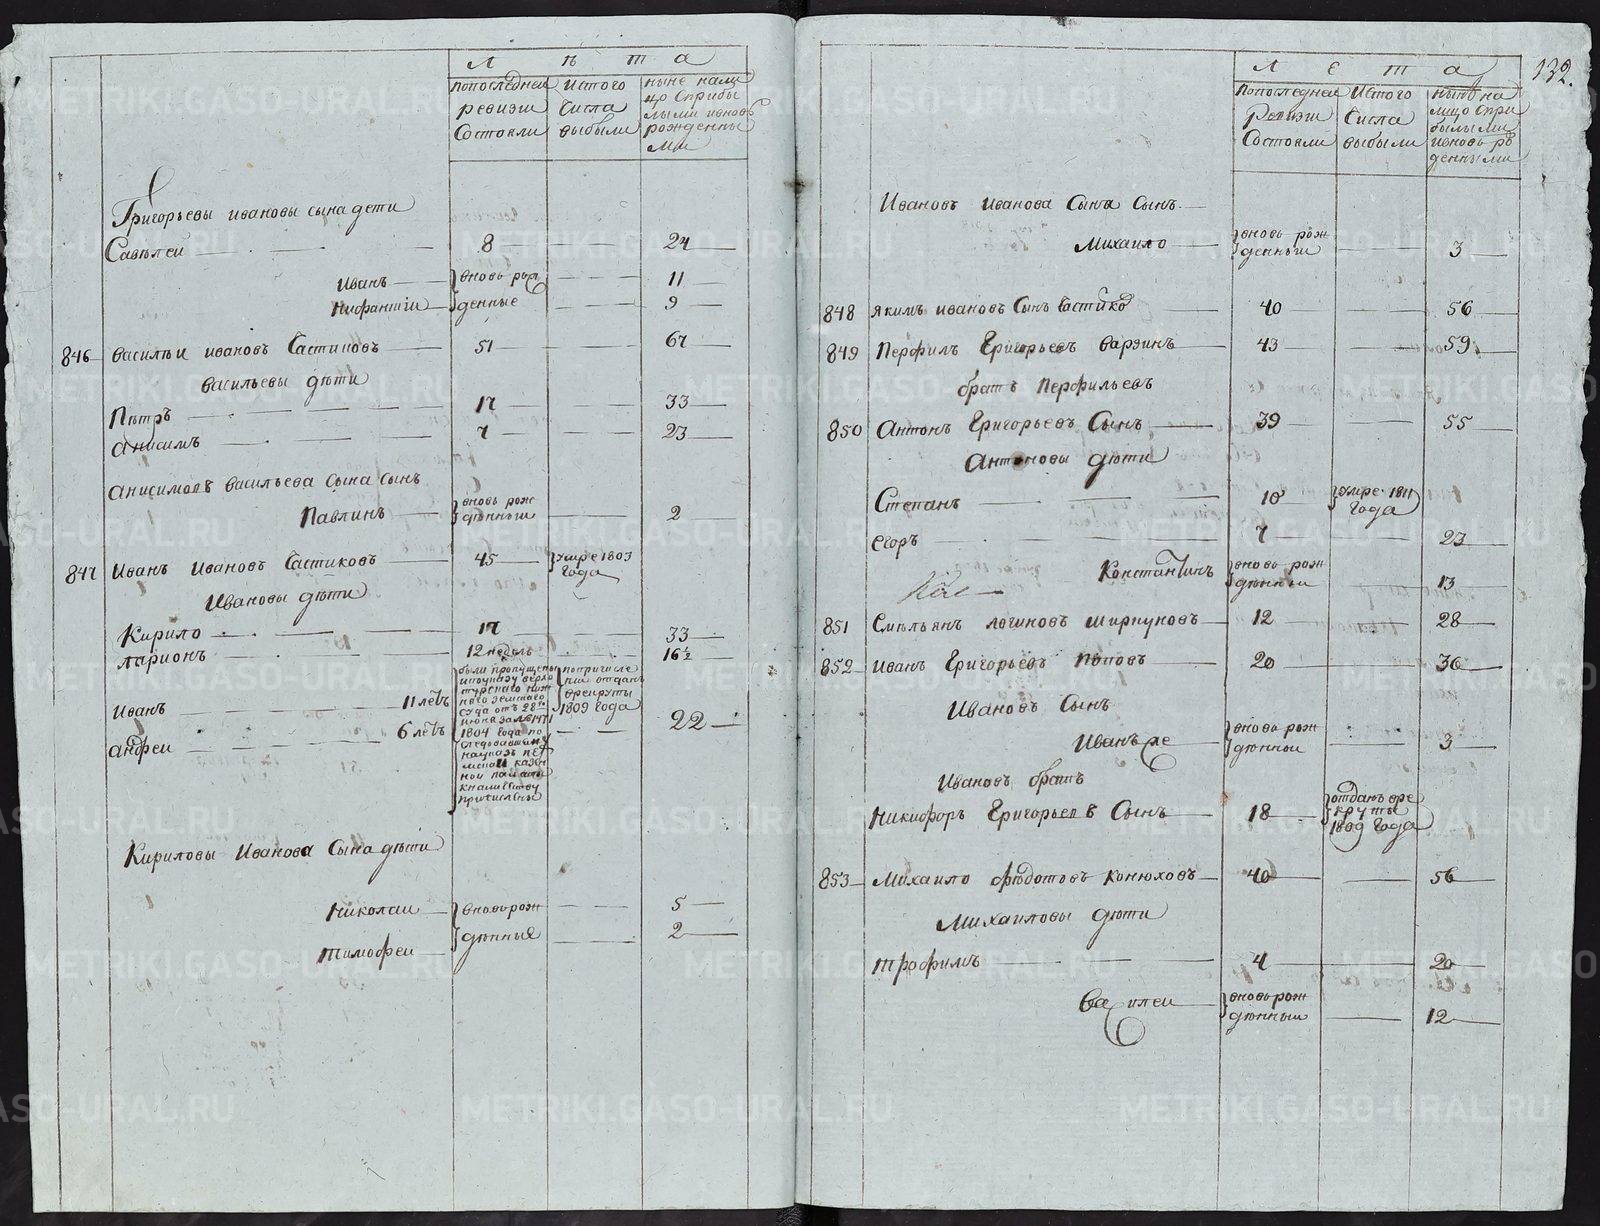 Лѣта
попоследнеи ревизiи Состояли
Истого Числа выбыли
ныне нали цо Сприбы лыми ивновь рожденны ми
Григорьевы ивановы сына дети
Савѣлеи 8 24
Иванъ вновь рож 11
Нифантiи денные 9
846 василѣи ивановъ Частиковъ 51 67
васильевы дѣти
Пѣтръ 17 33
Анисимъ 7 23
Анисимовъ васильева Сына Сынъ
Павлинъ вновь рож дѣнныи 2
847 Иванъ Ивановъ Частиковъ 45 умре 1803 года
Ивановы дѣти
Кирило 17 33
Ларионъ 12 недель 16½
Иванъ 11 летъ
были пропущены ипоуказу верхо турскаго ниж няго земскаго суда отъ 28го июня за №1471 1804 года по
попричисле нiи отданъ врекруты 1809 года
Андреи 6 летъ 22
Кириловы Иванова Сына дѣти
Николаи вновьрож 5
Тимофеи дѣнныя 2
132.
Лета
попоследнеи Ревизiи Состояли
Истого Числа выбыли
ныне на лицо спри былыми ивновь рѣ денными
Ивановъ Иванова Сына Сынъ
Михаило вновь рож денныи 3
848 якимъ ивановъ Сынъ Частико 40 56
849 Перфилъ Григорьевъ варзинъ 43 59
братъ Перфильевъ
850 Антонъ Григорьевъ Сынъ 39 55
Антоновы дѣти
Степанъ 10 умре 1811 года
Егоръ 7 23
Константинъ вновь рож дѣнныи 13
851 Смѣльянъ логиновъ ширпуновъ 12 28
852 Иванъ Григорьевъ поповъ 20 36
Ивановъ Сынъ
Иванъ же вновь рож дѣнныи 3
Ивановъ братъ
Никифоръ Григорьевъ Сынъ 18 отданъ вре круты 1809 года
853 Михаило Фѣдотовъ Конюховъ 40 56
Михаиловы дѣти
Трофимъ 4 20
Василеи вновьрож дѣнныи 12
METRIKI.GASO-URAL.RU